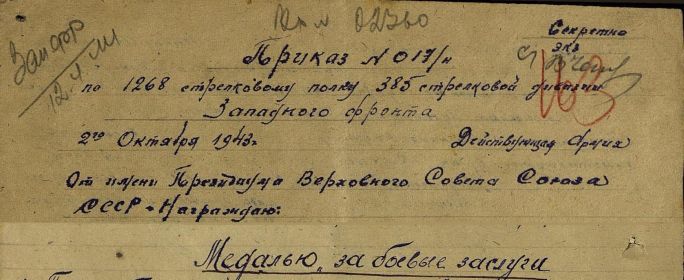 Зап фр
124 ш
02260
Секретно
экз
Приказ N 017/н
по 1268 стрелковому полку 385 стрелковой дивизии
Западного фронта
2го Октября 1943г. Действующая Армия
От имени Президиума Верховного Совета Союза
СССР - Награждаю:
Медалью „за боевые заслуги